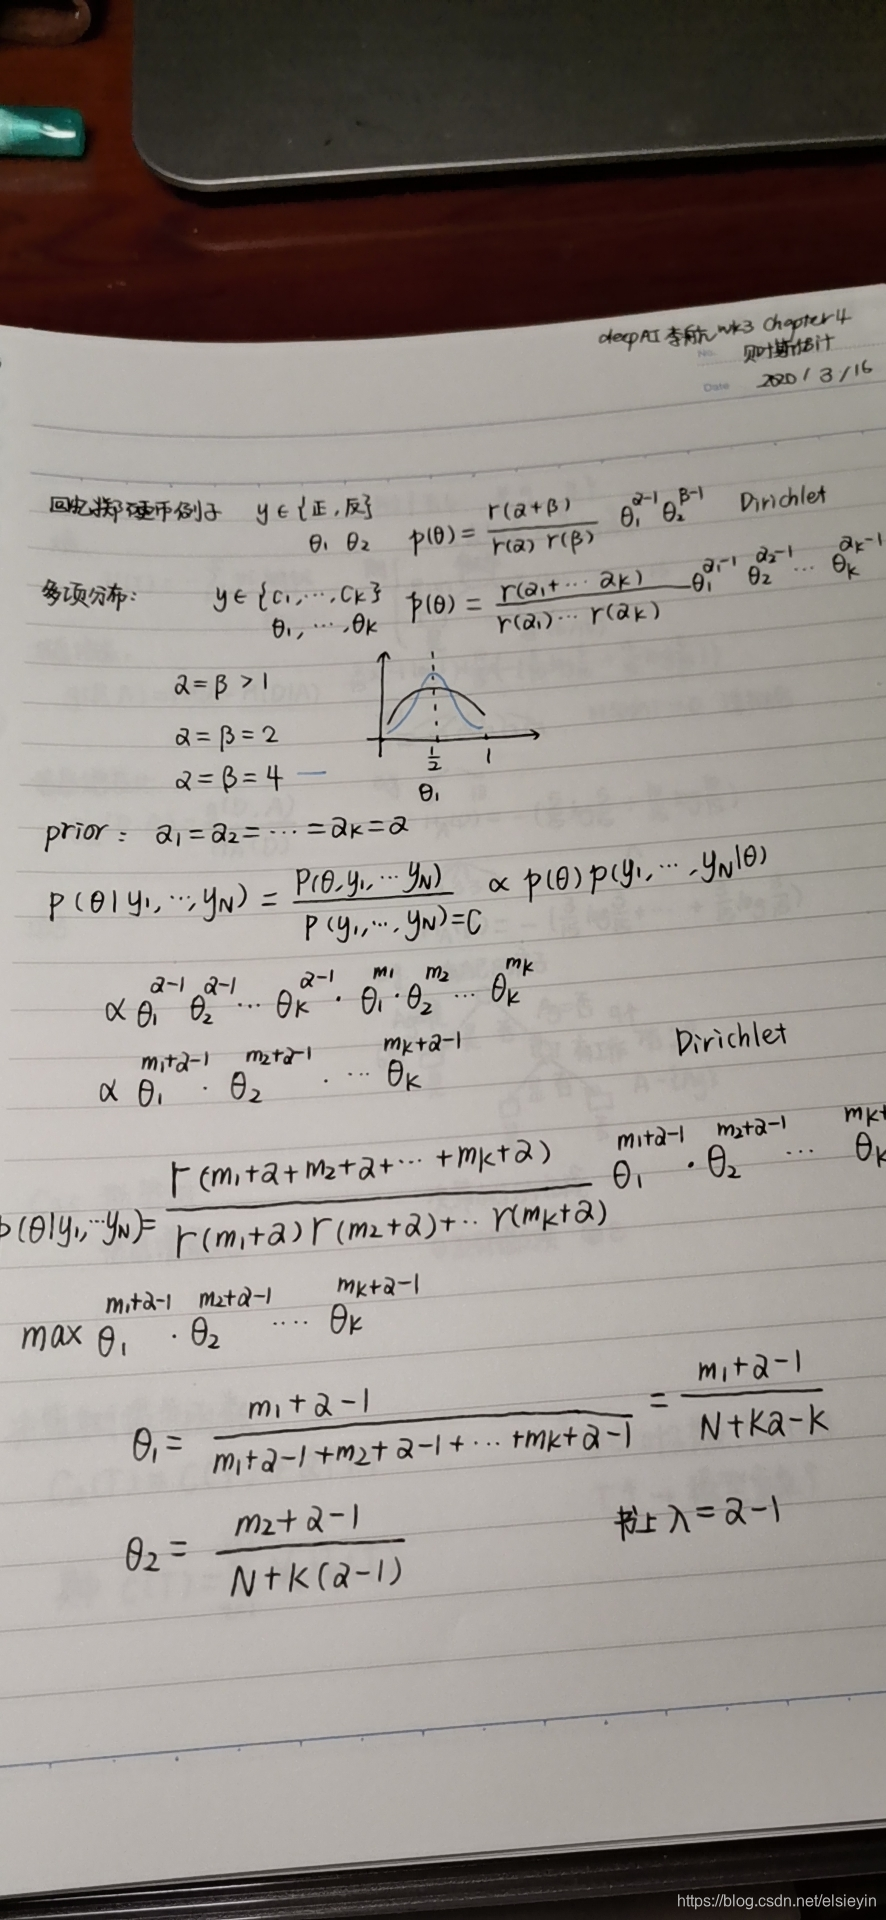 deepAI 李航 wk3 Chapter4
No.
贝叶斯估计
Date 2020 / 3 / 16
回忆掷硬币例子 y ∈ {正, 反} p(θ) = r(α+β) / r(α) r(β) θ₁^(α-1) θ₂^(β-1) Dirichlet
θ₁ θ₂
多项分布: y ∈ {C₁, ⋯, Cₖ} p(θ) = r(α₁+⋯ αₖ) / r(α₁)⋯ r(αₖ) θ₁^(α₁-1) θ₂^(α₂-1) ⋯ θₖ^(αₖ-1)
θ₁, ⋯, θₖ
α = β > 1
α = β = 2
α = β = 4
1/2 1
θ₁
prior: α₁ = α₂ = ⋯ = αₖ = α
p(θ|y₁, ⋯, y_N) = P(θ, y₁, ⋯ y_N) / P(y₁, ⋯, y_N) = C ∝ p(θ) p(y₁, ⋯, y_N|θ)
∝ θ₁^(α-1) θ₂^(α-1) ⋯ θₖ^(α-1) · θ₁^(m₁) · θ₂^(m₂) ⋯ θₖ^(mₖ)
∝ θ₁^(m₁+α-1) · θ₂^(m₂+α-1) · ⋯ θₖ^(mₖ+α-1) Dirichlet
p(θ|y₁, ⋯ y_N) = r(m₁+α+m₂+α+⋯+mₖ+α) / r(m₁+α) r(m₂+α)+⋯ r(mₖ+α) θ₁^(m₁+α-1) · θ₂^(m₂+α-1) ⋯ θₖ^(mₖ+
max θ₁^(m₁+α-1) · θ₂^(m₂+α-1) ⋯ θₖ^(mₖ+α-1)
θ₁ = m₁+α-1 / m₁+α-1+m₂+α-1+⋯+mₖ+α-1 = m₁+α-1 / N+Kα-K
θ₂ = m₂+α-1 / N+K(α-1) 书上 λ = α-1
https://blog.csdn.net/elsieyin